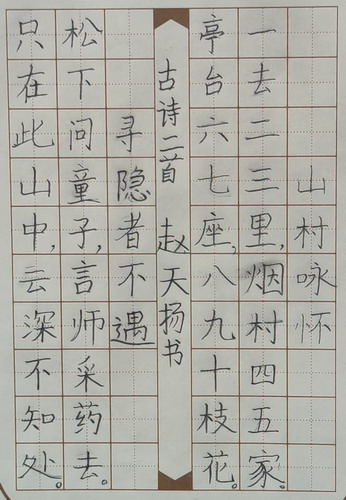 山村咏怀
一去二三里,烟村四五家。
亭台六七座,八九十枝花。
古诗二首 赵天扬书
寻隐者不遇
松下问童子,言师采药去。
只在此山中,云深不知处。